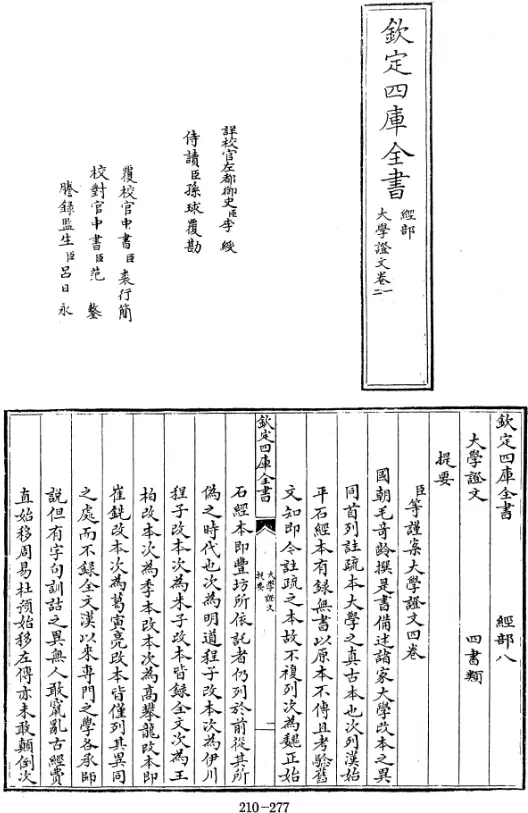 欽定四庫全書
經部
大學證文卷一二
詳校官左都御史臣李綬
侍讀臣孫球覆勘
覆校官中書臣裘行簡
校對官中書臣范鏊
謄錄監生臣呂日永
欽定四庫全書 經部八
大學證文 四書類
提要
臣等謹案大學證文四卷
國朝毛奇齡撰是書備述諸家大學改本之異
同首列註疏本大學之真古本也次列漢熹
平石經本有錄無書以原本不傳且考驗舊
文知即今註疏之本故不複列次為魏正始
欽定四庫全書
大學證文
提要
一
石經本即豐坊所依託者仍列於前從其所
偽之時代也次為明道程子改本次為伊川
程子改本次為朱子改本皆錄全文次為王
柏改本次為季本改本次為高攀龍改本即
崔銑改本次為葛寅亮改本皆僅列其異同
之處而不錄全文漢以來專門之學各承師
說但有字句訓詁之異無人敢竄亂古經費
直始移周易杜預始移左傳亦未敢顛倒次
210-277